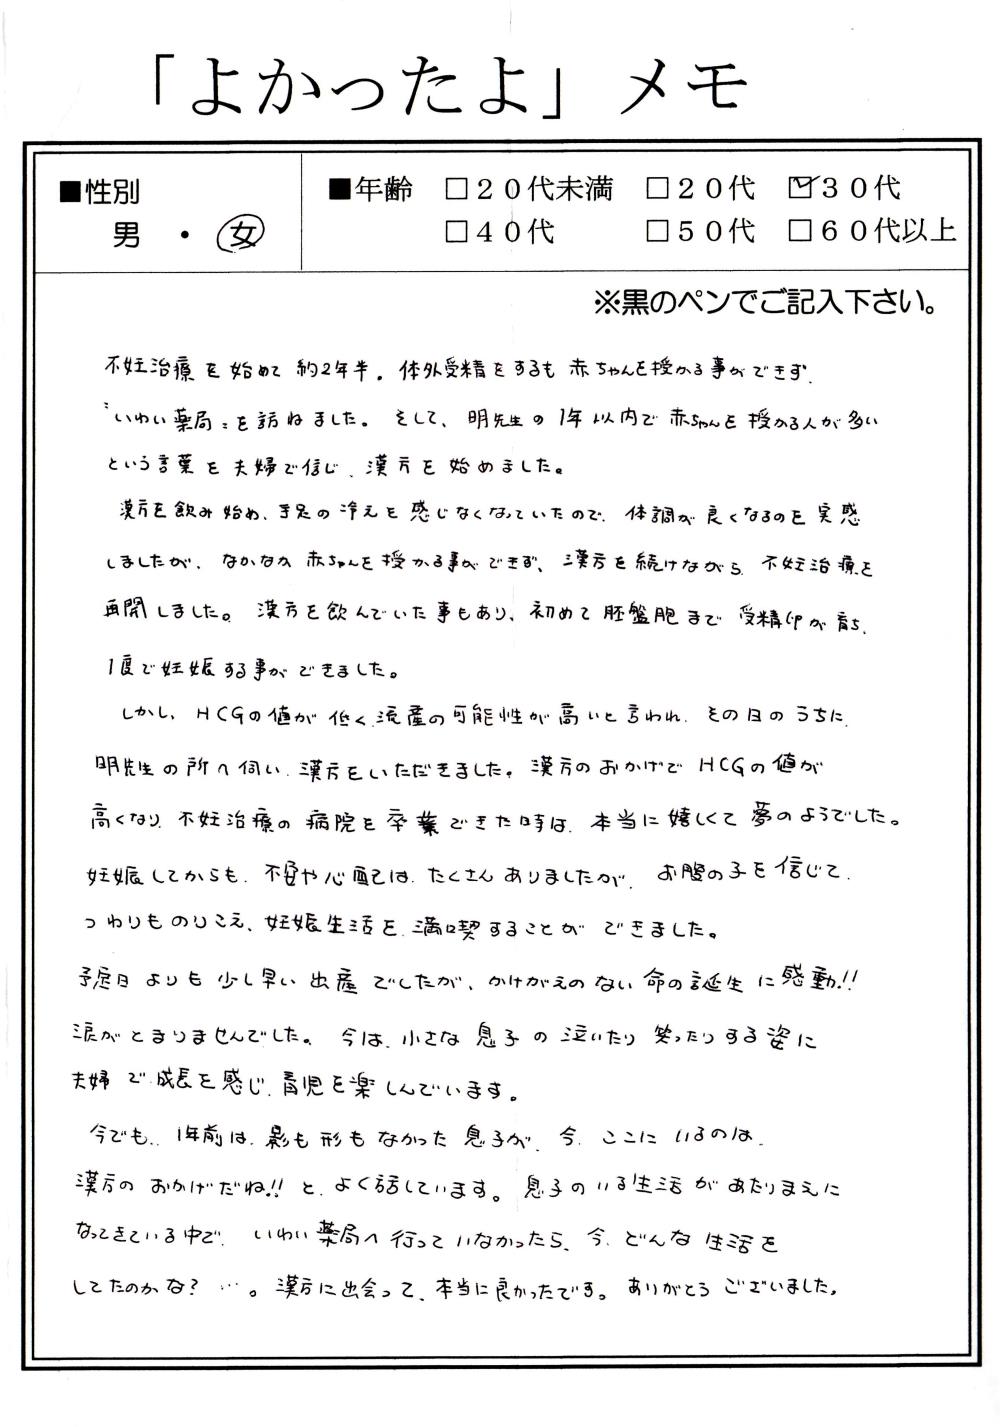 「よかったよ」メモ
■性別
男・女
■年齢 □20代未満 □20代 ☑30代
□40代 □50代 □60代以上
※黒のペンでご記入下さい。
不妊治療を始めて約2年半。体外受精をするも赤ちゃんを授かる事ができず、
"いわい薬局"を訪ねました。そして、明先生の1年以内で赤ちゃんを授かる人が多い
という言葉を夫婦で信じ、漢方を始めました。
漢方を飲み始め、手足の冷えを感じなくなっていたので、体調が良くなるのを実感
しましたが、なかなか赤ちゃんを授かる事ができず、漢方を続けながら、不妊治療を
再開しました。漢方を飲んでいた事もあり、初めて胚盤胞まで受精卵が育ち、
1度で妊娠する事ができました。
しかし、HCGの値が低く、流産の可能性が高いと言われ、その日のうちに、
明先生の所へ伺い、漢方をいただきました。漢方のおかげでHCGの値が
高くなり、不妊治療の病院を卒業できた時は、本当に嬉しくて夢のようでした。
妊娠してからも、不安や心配は、たくさんありましたが、お腹の子を信じて、
つわりものりこえ、妊娠生活を、満喫することができました。
予定日よりも少し早い出産でしたが、かけがえのない命の誕生に感動!!
涙がとまりませんでした。今は、小さな息子の泣いたり笑ったりする姿に
夫婦で成長を感じ、育児を楽しんでいます。
今でも、、1年前は、影も形もなかった息子が、今、ここにいるのは、
漢方のおかげだね!!と、よく話しています。息子のいる生活があたりまえに
なってきている中で、いわい薬局へ行っていなかったら、今、どんな生活を
してたのかな?…。漢方に出会って、本当に良かったです。ありがとうございました。